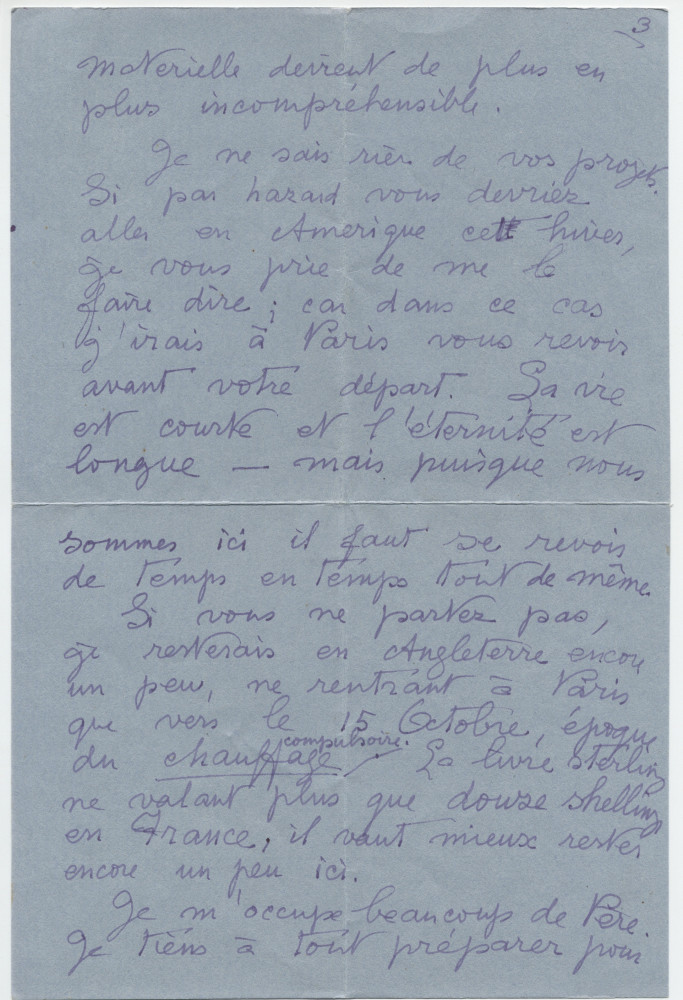 3
materielle devient de plus en
plus incompréhensible.
Je ne sais rien de vos projets.
Si par hazard vous devriez
aller en Amerique cett hiver,
je vous prie de me le
faire dire; car dans ce cas
j'irais à Paris vous revoir
avant votre départ. La vie
est courte et l'éternité est
longue — mais puisque nous
sommes ici il faut se revoir
de temps en temps tout de même.
Si vous ne partez pas,
je resterais en Angleterre encore
un peu, ne rentrant à Paris
que vers le 15 Octobre, époque
du chauffage compulsoire. La livre sterling
ne valant plus que douze shelling
en France, il vaut mieux rester
encore un peu ici.
Je m'occupe beaucoup de Père.
Je tiens à tout préparer pour